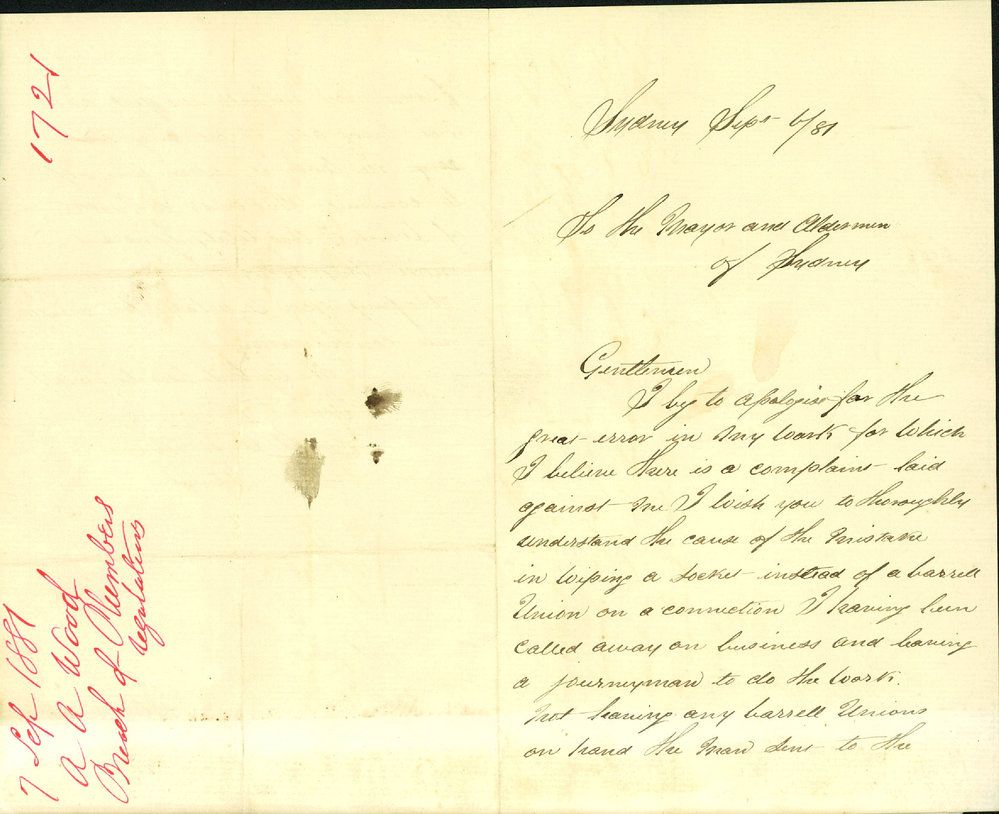 1721
7 Sep 1881
A A Wood
Breach of Plumbers
regulations
Sydney Sept 6/81
To the Mayor and Aldermen
of Sydney
Gentlemen
I beg to apologise for the
great error in my work for which
I believe there is a complaint laid
against me I wish you to thoroughly
understand the cause of the mistake
in wiping a socket instead of a barrell
Union on a conniction I having been
called away on business and leaving
a journeyman to do the work.
not having any barrell Unions
on hand the man sent to the